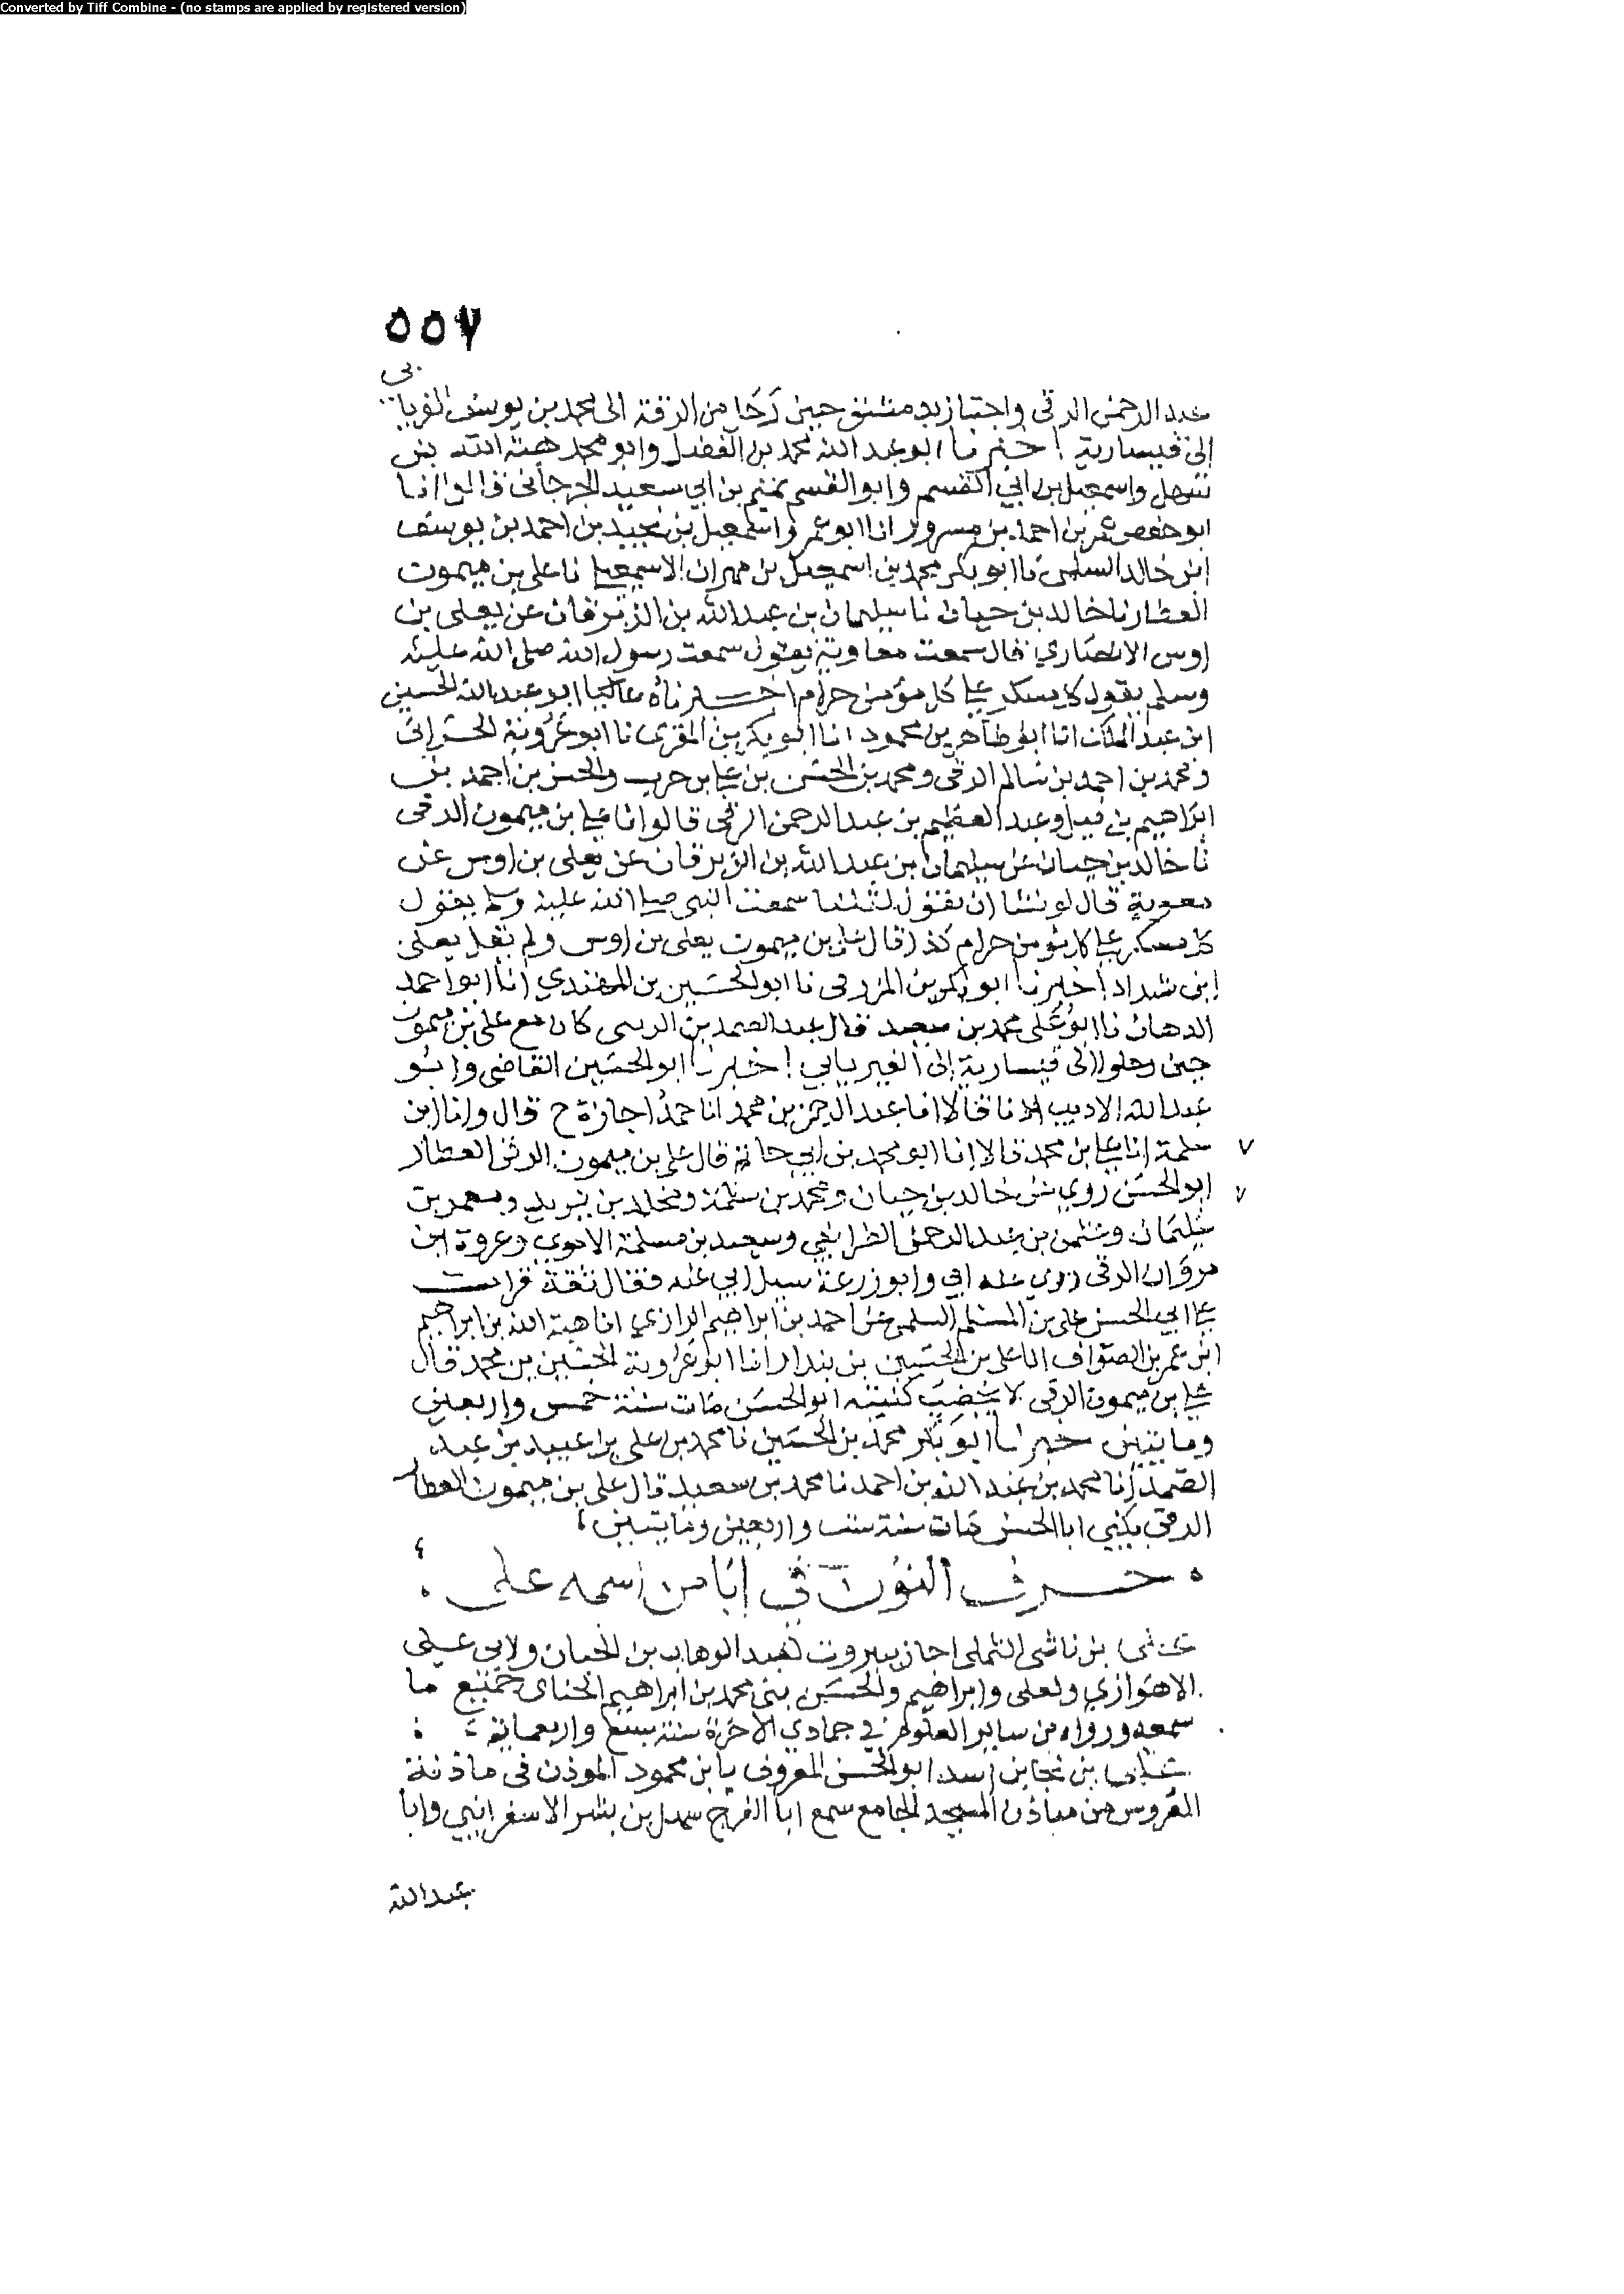 Converted by Tiff Combine - (no stamps are applied by registered version)
٥٥٧
عبد الرحمن الرقى واجتاز بدمشق حين رحا من الرقة الى محمد بن يوسف الفريابى
إلى قيسارية اخبرنا ابو عبد الله محمد بن الفضل وابو محمد هبة الله بن
سهل واسمعيل بن ابي القسم وابو القسم تميم بن ابي سعيد الجرجانى قالوا انا
ابو حفص عمر بن احمد بن مسرور انا ابو عمرو اسمعيل بن نجيد بن احمد بن يوسف
ابن خالد السلمى نا ابو بكر محمد بن اسمعيل بن مهران الاسمعيلي نا على بن ميمون
العطار نا خالد بن حيان نا سليمان بن عبد الله بن الزبرقان عن يعلى بن
اوس الانصاري قال سمعت معاوية يقول سمعت رسول الله صلى الله عليه
وسلم يقول كل مسكر على كل مؤمن حرام اخبرناه عاليا ابو عبد الله الحسين
ابن عبد الملك انا ابو طاهر بن محمود انا ابو بكر بن المقرى نا ابو عروبة الحرانى
ومحمد بن احمد بن سالم الرقى ومحمد بن الحسن بن على بن حرب والحسن بن احمد بن
ابراهيم بن فيل وعبد العظيم بن عبد الرحمن الرقى قالوا انا على بن ميمون الرقى
نا خالد بن حيان عن سليمان بن عبد الله بن الزبرقان عن يعلى بن اوس عن
معوية قال لو نشا ان نقول لقلنا سمعت النبى صلى الله عليه وسلم يقول
كل مسكر على كل مؤمن حرام كذا قال على بن ميمون يعلى بن اوس ولم يقل يعلى
ابن شداد اخبرنا ابو بكر بن المزرفى نا ابو الحسين بن المهتدي انا ابو احمد
الدهان نا ابو على محمد بن سعيد قال عبد الصمد بن كان مع على بن ميمون
حين رحلوا الى قيسارية إلى الفيريابي اخبرنا ابو الحسين القاضى وابو
عبد الله الاديب قالا انا عبد الرحمن بن محمد انا حمد اجازة ح قال وانا ابن
سلمة انا على بن محمد قالا انا ابو محمد بن ابي حاتم قال على بن ميمون الرقى العطار
ابو الحسن روي عن خالد بن حيان ومحمد بن سلمة ومخلد بن يزيد ومعمر بن
سليمان وعثمن بن عبد الرحمن الطرايفي وسعيد بن مسلمة الاموي وعروة ابن
مروان الرقى روي عنه ابي وابو زرعة سيل ابي عنه فقال ثقة قرات
على ابي الحسن على بن المسلم السلمى عن احمد بن ابراهيم الرازي انا هبة الله بن ابراهيم
ابن عمر بن الصواف انا على بن الحسين بن بندار انا ابو عروبة الحسين بن محمد قال
على بن ميمون الرقى لا يخضب كنيته ابو الحسن مات سنة خمس واربعين
وماتيين اخبرنا ابو بكر محمد بن الحسين نا محمد بن على بن عبيد بن عبد
الصمد انا محمد بن عبد الله بن احمد نا محمد بن سعيد قال على بن ميمون العطار
الرقى يكني ابا الحسن مات سنة ست واربعين وماتيين
حرف النون فى ابا من اسمه على
على بن ناشى اجاز ببيروت لعبد الوهاب بن الحبان ولابى على
الاهوازي ولعلى وابراهيم والحسين بنى محمد بن ابراهيم الحناى جميع ما
سمعه ورواه من ساير العلوم في جمادي الاخرة سنة سبع واربعماية
على بن نجا بن اسد ابو الحسن المعروف بابن محمود الموذن فى ماذنة
العروس من مباذن المسجد الجامع سمع ابا الفرج سهل بن بشر الاسفرايني وابا
عبد الله